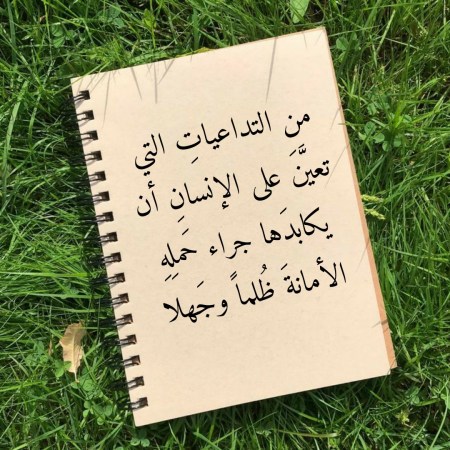 من التداعياتِ التي
تعيَّنَ على الإنسانِ أن
يكابدَها جراء حَملِهِ
الأمانةَ ظُلماً وجَهلا